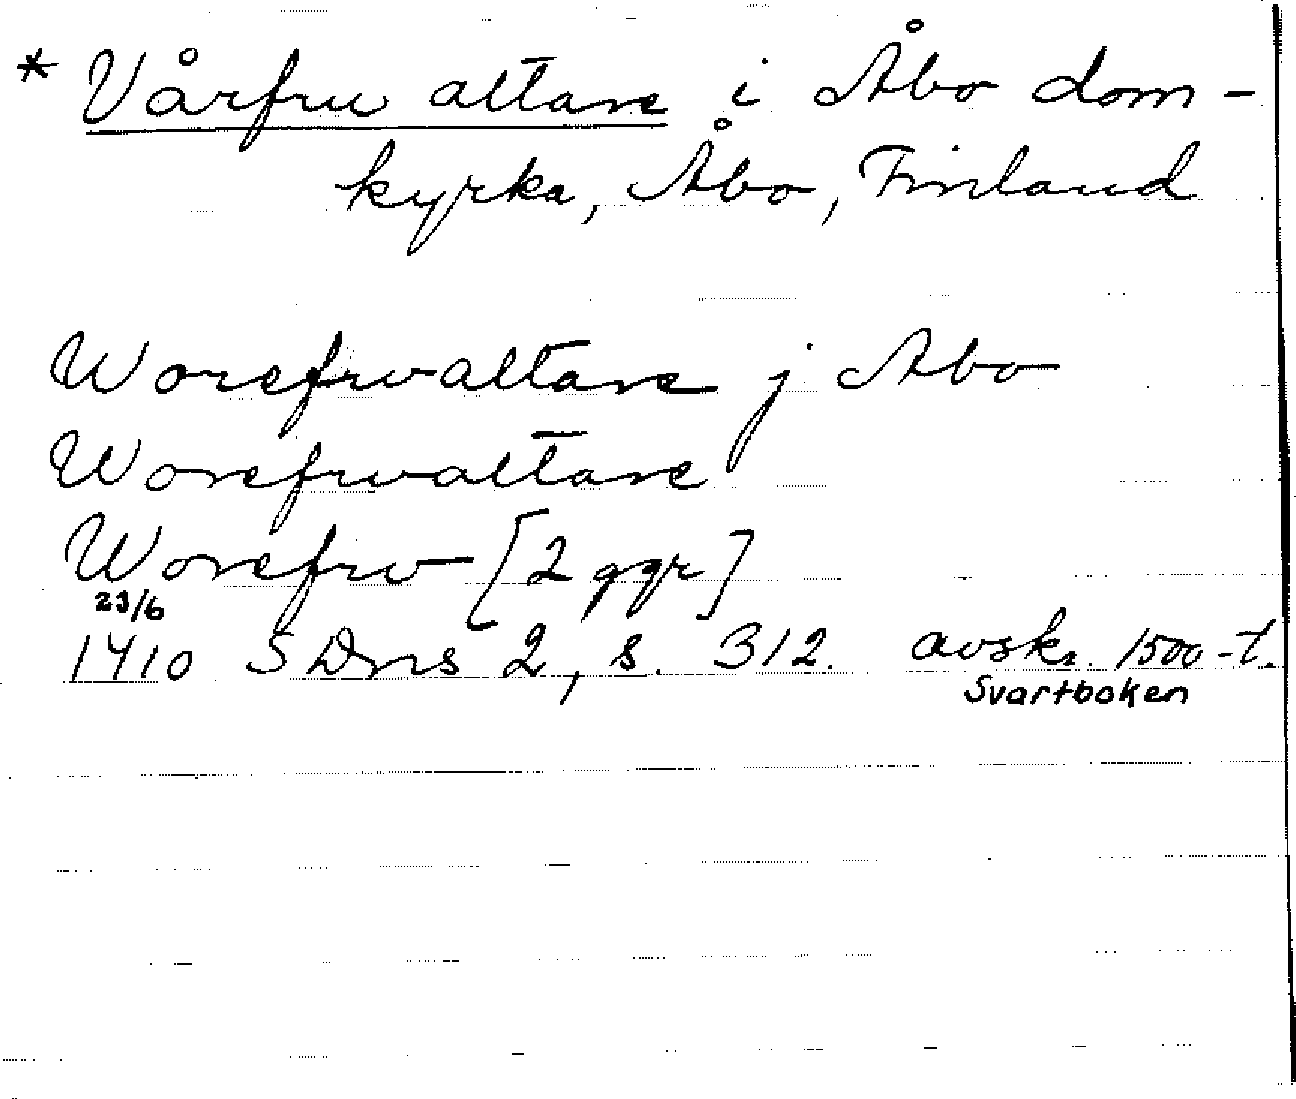 * Vårfru altare i Åbo dom-
kyrka, Åbo, Finland
Worefrwaltare j Abo
Worefrwaltare
Worefrw [2 ggr]
23/6
1410 SDns 2, s. 312. avskr. 1500-t.
Svartboken